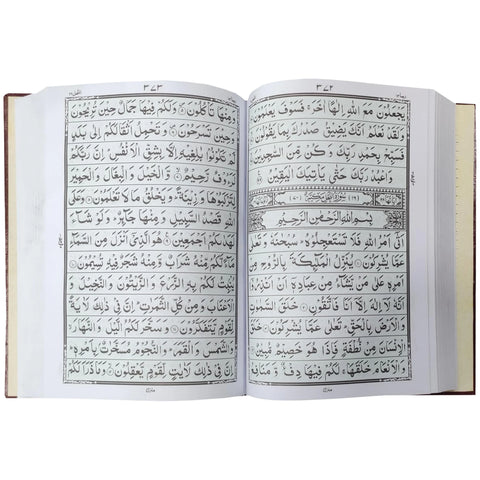 ٣٧٢
يَجْعَلُوْنَ مَعَ اللّٰهِ اِلٰهًا اٰخَرَ ۚ فَسَوْفَ يَعْلَمُوْنَ
وَلَقَدْ نَعْلَمُ اَنَّكَ يَضِيْقُ صَدْرُكَ بِمَا يَقُوْلُوْنَ
فَسَبِّحْ بِحَمْدِ رَبِّكَ وَ كُنْ مِّنَ السّٰجِدِيْنَ
وَ اعْبُدْ رَبَّكَ حَتّٰى يَاْتِيَكَ الْيَقِيْنُ
سُوْرَةُ النَّحْلِ مَكِّيَّةٌ
بِسْمِ اللّٰهِ الرَّحْمٰنِ الرَّحِيْمِ
اَتٰٓى اَمْرُ اللّٰهِ فَلَا تَسْتَعْجِلُوْهُ ؕ سُبْحٰنَهٗ وَ تَعٰلٰى
عَمَّا يُشْرِكُوْنَ يُنَزِّلُ الْمَلٰٓئِكَةَ بِالرُّوْحِ مِنْ
اَمْرِهٖ عَلٰى مَنْ يَّشَآءُ مِنْ عِبَادِهٖۤ اَنْ اَنْذِرُوْۤا
اَنَّهٗ لَاۤ اِلٰهَ اِلَّاۤ اَنَا فَاتَّقُوْنِ خَلَقَ السَّمٰوٰتِ
وَ الْاَرْضَ بِالْحَقِّ ؕ تَعٰلٰى عَمَّا يُشْرِكُوْنَ خَلَقَ
الْاِنْسَانَ مِنْ نُّطْفَةٍ فَاِذَا هُوَ خَصِيْمٌ مُّبِيْنٌ
وَ الْاَنْعَامَ خَلَقَهَا ۚ لَكُمْ فِيْهَا دِفْءٌ وَّ مَنَافِعُ
٣٧٣
وَ مِنْهَا تَاْكُلُوْنَ وَلَكُمْ فِيْهَا جَمَالٌ حِيْنَ تُرِيْحُوْنَ
وَ حِيْنَ تَسْرَحُوْنَ وَ تَحْمِلُ اَثْقَالَكُمْ اِلٰى بَلَدٍ
لَّمْ تَكُوْنُوْا بٰلِغِيْهِ اِلَّا بِشِقِّ الْاَنْفُسِ ؕ اِنَّ رَبَّكُمْ
لَرَءُوْفٌ رَّحِيْمٌ وَّ الْخَيْلَ وَ الْبِغَالَ وَ الْحَمِيْرَ
لِتَرْكَبُوْهَا وَ زِيْنَةً ؕ وَ يَخْلُقُ مَا لَا تَعْلَمُوْنَ وَعَلَى
اللّٰهِ قَصْدُ السَّبِيْلِ وَ مِنْهَا جَآئِرٌ ؕ وَ لَوْ شَآءَ
لَهَدٰىكُمْ اَجْمَعِيْنَ هُوَ الَّذِيْۤ اَنْزَلَ مِنَ السَّمَآءِ
مَآءً لَّكُمْ مِّنْهُ شَرَابٌ وَّ مِنْهُ شَجَرٌ فِيْهِ تُسِيْمُوْنَ
يُنْۢبِتُ لَكُمْ بِهِ الزَّرْعَ وَ الزَّيْتُوْنَ وَ النَّخِيْلَ وَ
الْاَعْنَابَ وَ مِنْ كُلِّ الثَّمَرٰتِ ؕ اِنَّ فِيْ ذٰلِكَ لَاٰيَةً
لِّقَوْمٍ يَّتَفَكَّرُوْنَ وَ سَخَّرَ لَكُمُ الَّيْلَ وَ النَّهَارَ
وَ الشَّمْسَ وَ الْقَمَرَ ؕ وَ النُّجُوْمُ مُسَخَّرٰتٌۢ بِاَمْرِهٖ ؕ
اِنَّ فِيْ ذٰلِكَ لَاٰيٰتٍ لِّقَوْمٍ يَّعْقِلُوْنَ وَ مَا ذَرَاَ لَكُمْ